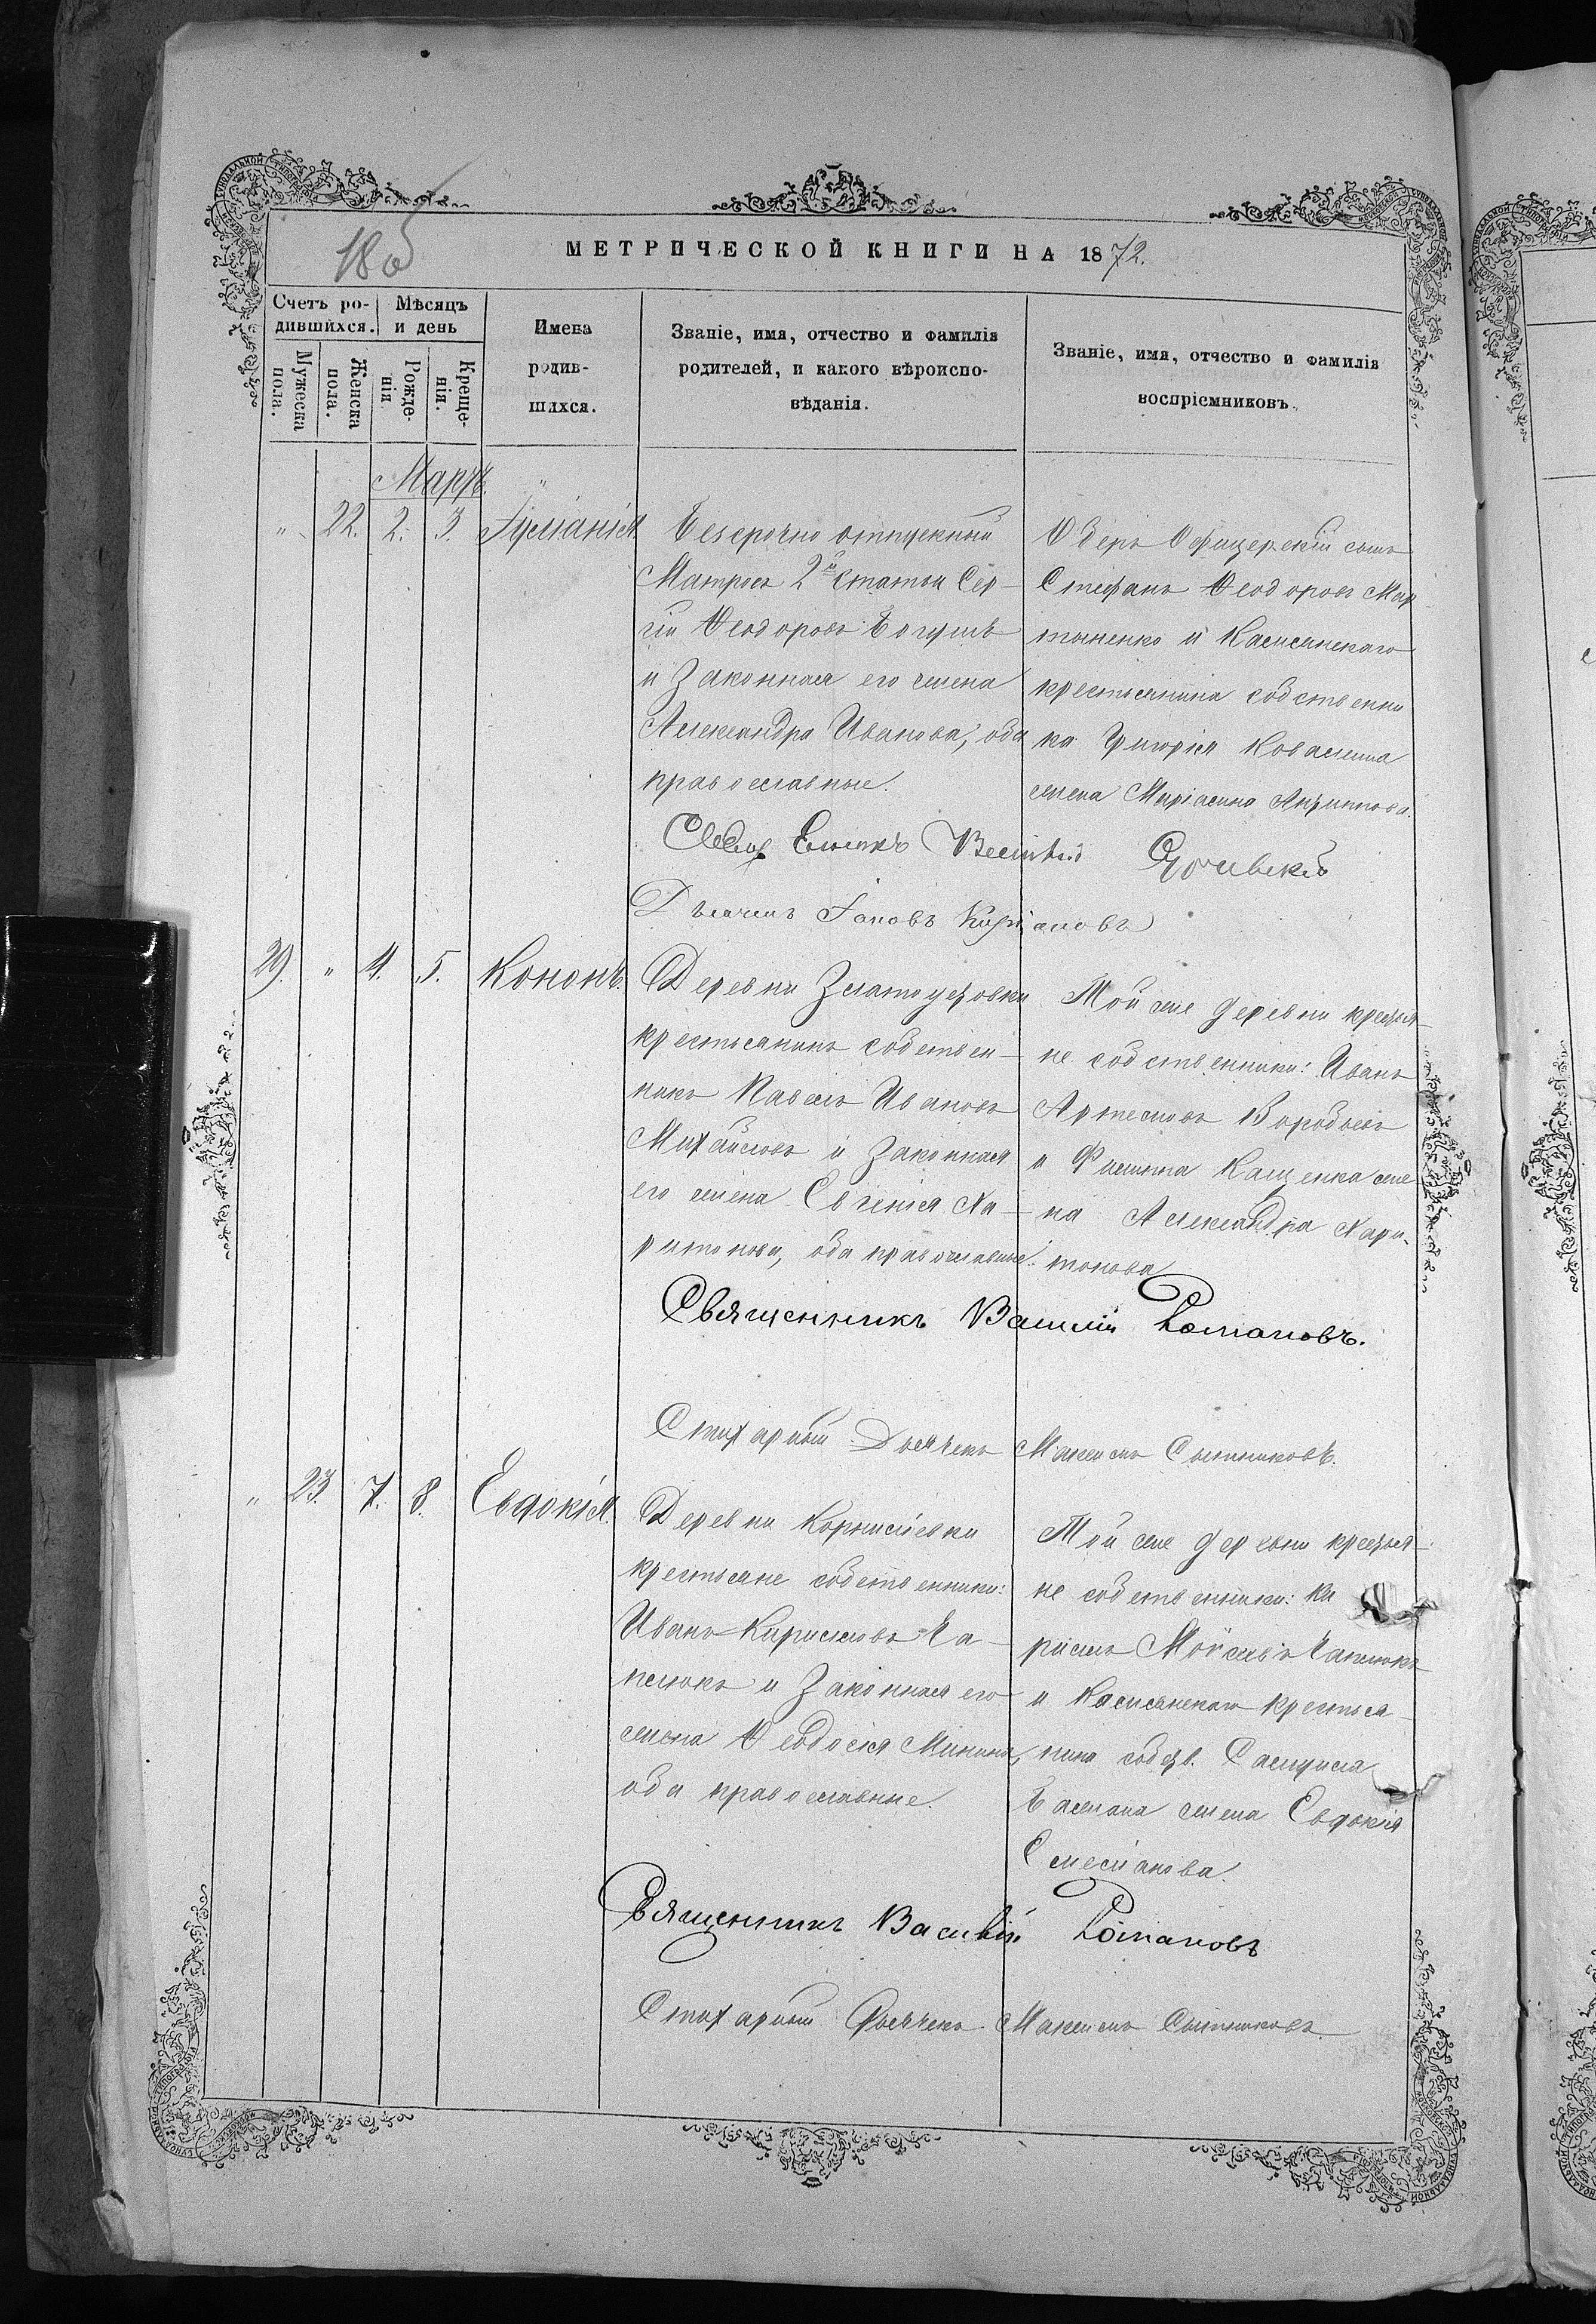 МЕТРИЧЕСКОЙ КНИГИ НА 1872.
Счетъ ро-
дившихся.
Мѣсяцъ
и день
Мужеска
пола.
Женска
пола.
Рожде-
нія.
Креще-
нія.
Имена
родив-
шихся.
Званіе, имя, отчество и фамилія
родителей, и какого вѣроиспо-
вѣданія.
Званіе, имя, отчество и фамилія
воспріемниковъ.
Мартъ.
" 22. 2. 3. Іуліанія
Безсрочно отпускный
Матросъ 2й Статьи Сер-
гій Ѳеодоровъ Богушъ
и Законная его жена
Александра Иванова, оба
православные.
Оберъ Офицерскій сынъ
Стефанъ Ѳеодоровъ Мар
тыненко и
крестьянина собственни
ка Григорія
жена
Дьячекъ Іаковъ
29. " 4. 5. Кононъ.
Деревни Златоустовки
крестьянинъ собствен-
никъ Павелъ Ивановъ
Михайловъ и Законная
его жена Евгенія Ха-
ритонова, оба православные.
Той же деревни крестья-
не собственники: Иванъ
Артемовъ Воробьевъ
и Филиппа Кащенка же
на Александра Хари-
тонова
Священникъ Василій Романовъ.
Стихарный Дьячекъ Максимъ Сытниковъ.
" 23. 7. 8. Евдокія.
Деревни Корнилѣевки
крестьяне собственники:
Иванъ Кирилловъ Ча-
плюкъ и Законная его
жена Ѳеодосія Минина,
оба православные.
Той же деревни крестья-
не собственники: Ки
риллъ Моисеевъ Чаплюкъ
и крестья-
нина собств. Самуила
жена Евдокія
Священникъ Василій Романовъ
Стихарный Дьячекъ Максимъ Сытниковъ.